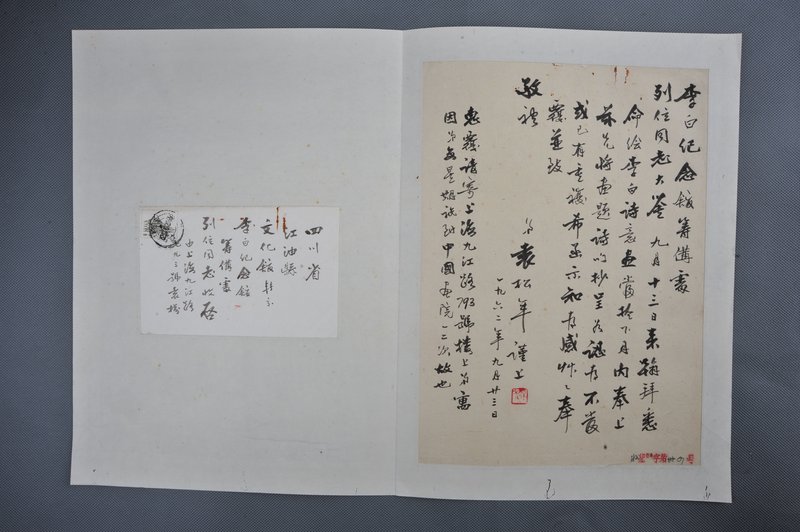 李白纪念馆筹备处
列位同志大鉴 九月十三日来翰拜悉
命绘李白诗意画当於下月内奉上
兹先将画题诗句抄呈
或已有重复希函示知为感草々奉
覆并致
敬礼
弟袁松年谨上
一九六二年九月廿三日
惠覆请寄上海九江路793号楼上弟寓
中国画院一二次故也
四川省
江油县
文化馆转
李白纪念馆
筹备处
列位同志收启
由上海九江路
七九三号袁